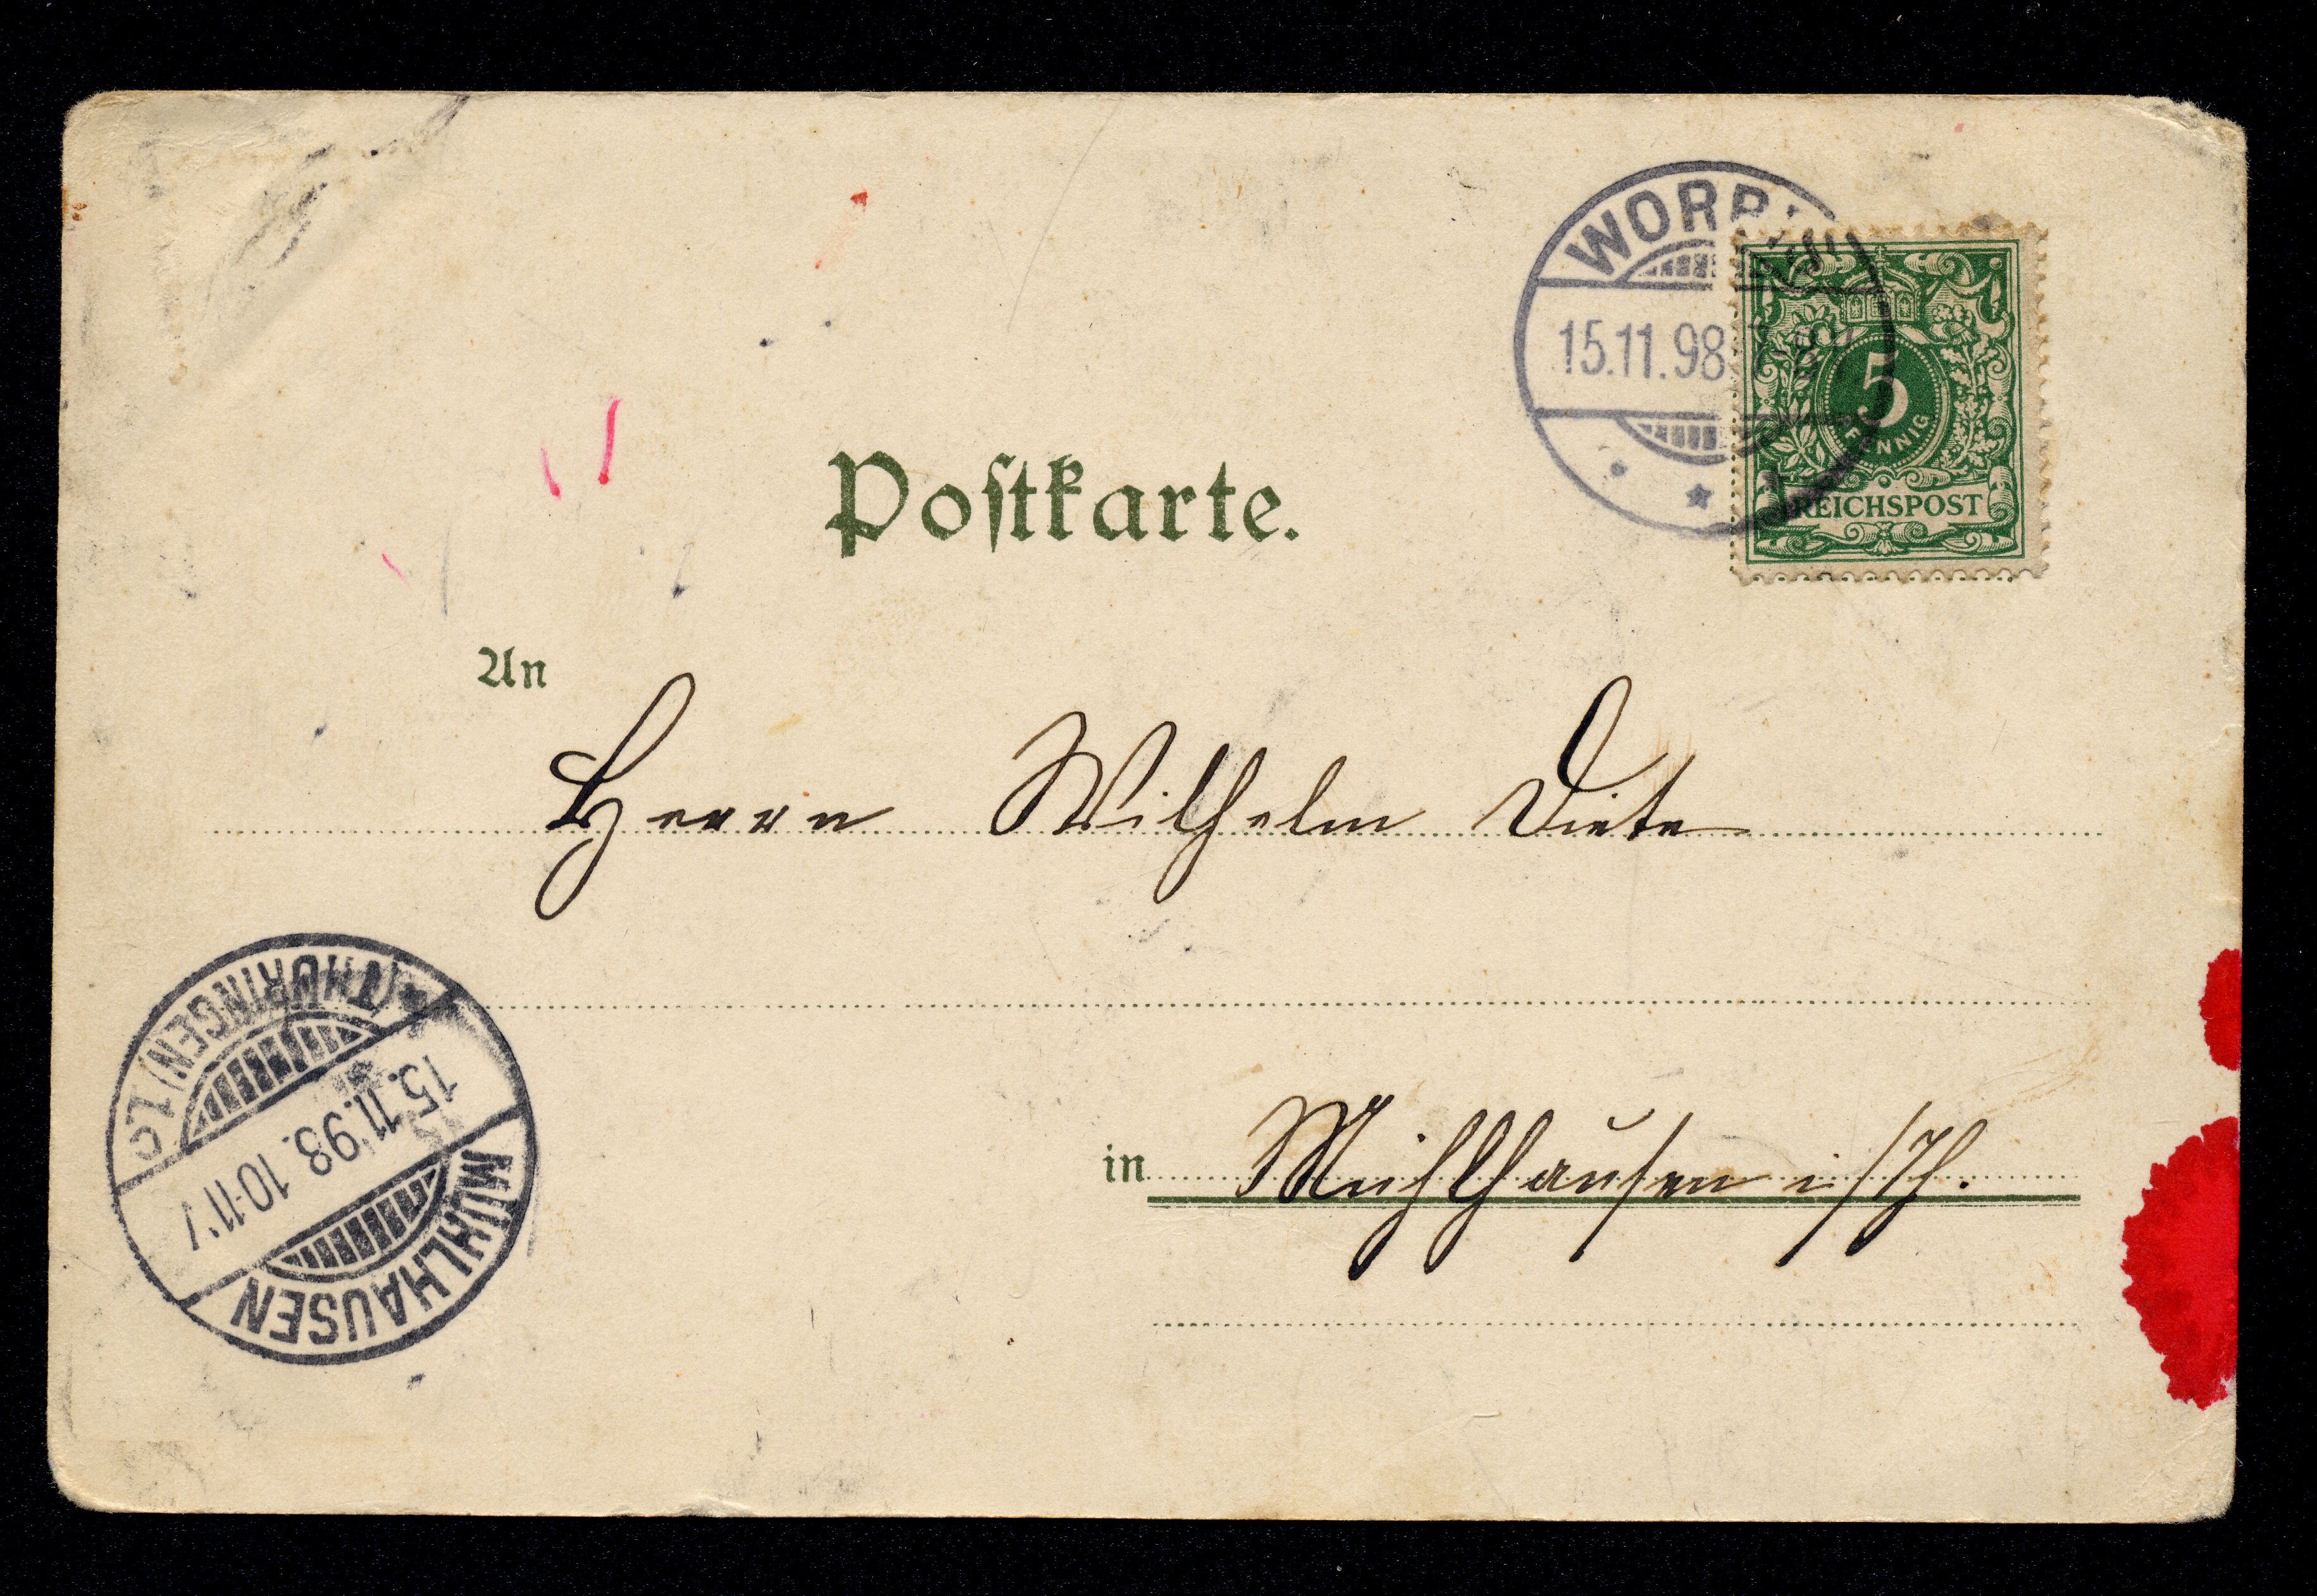 WORBIS
15.11.98. 7-8
5
PFENNIG
REICHSPOST
Poſtkarte.
An
Herrn Wilhelm Diete
in Mühlhausen i/Th.
MÜHLHAUSEN
15.11.98. 10-11 V
(THÜRINGEN) 1 c